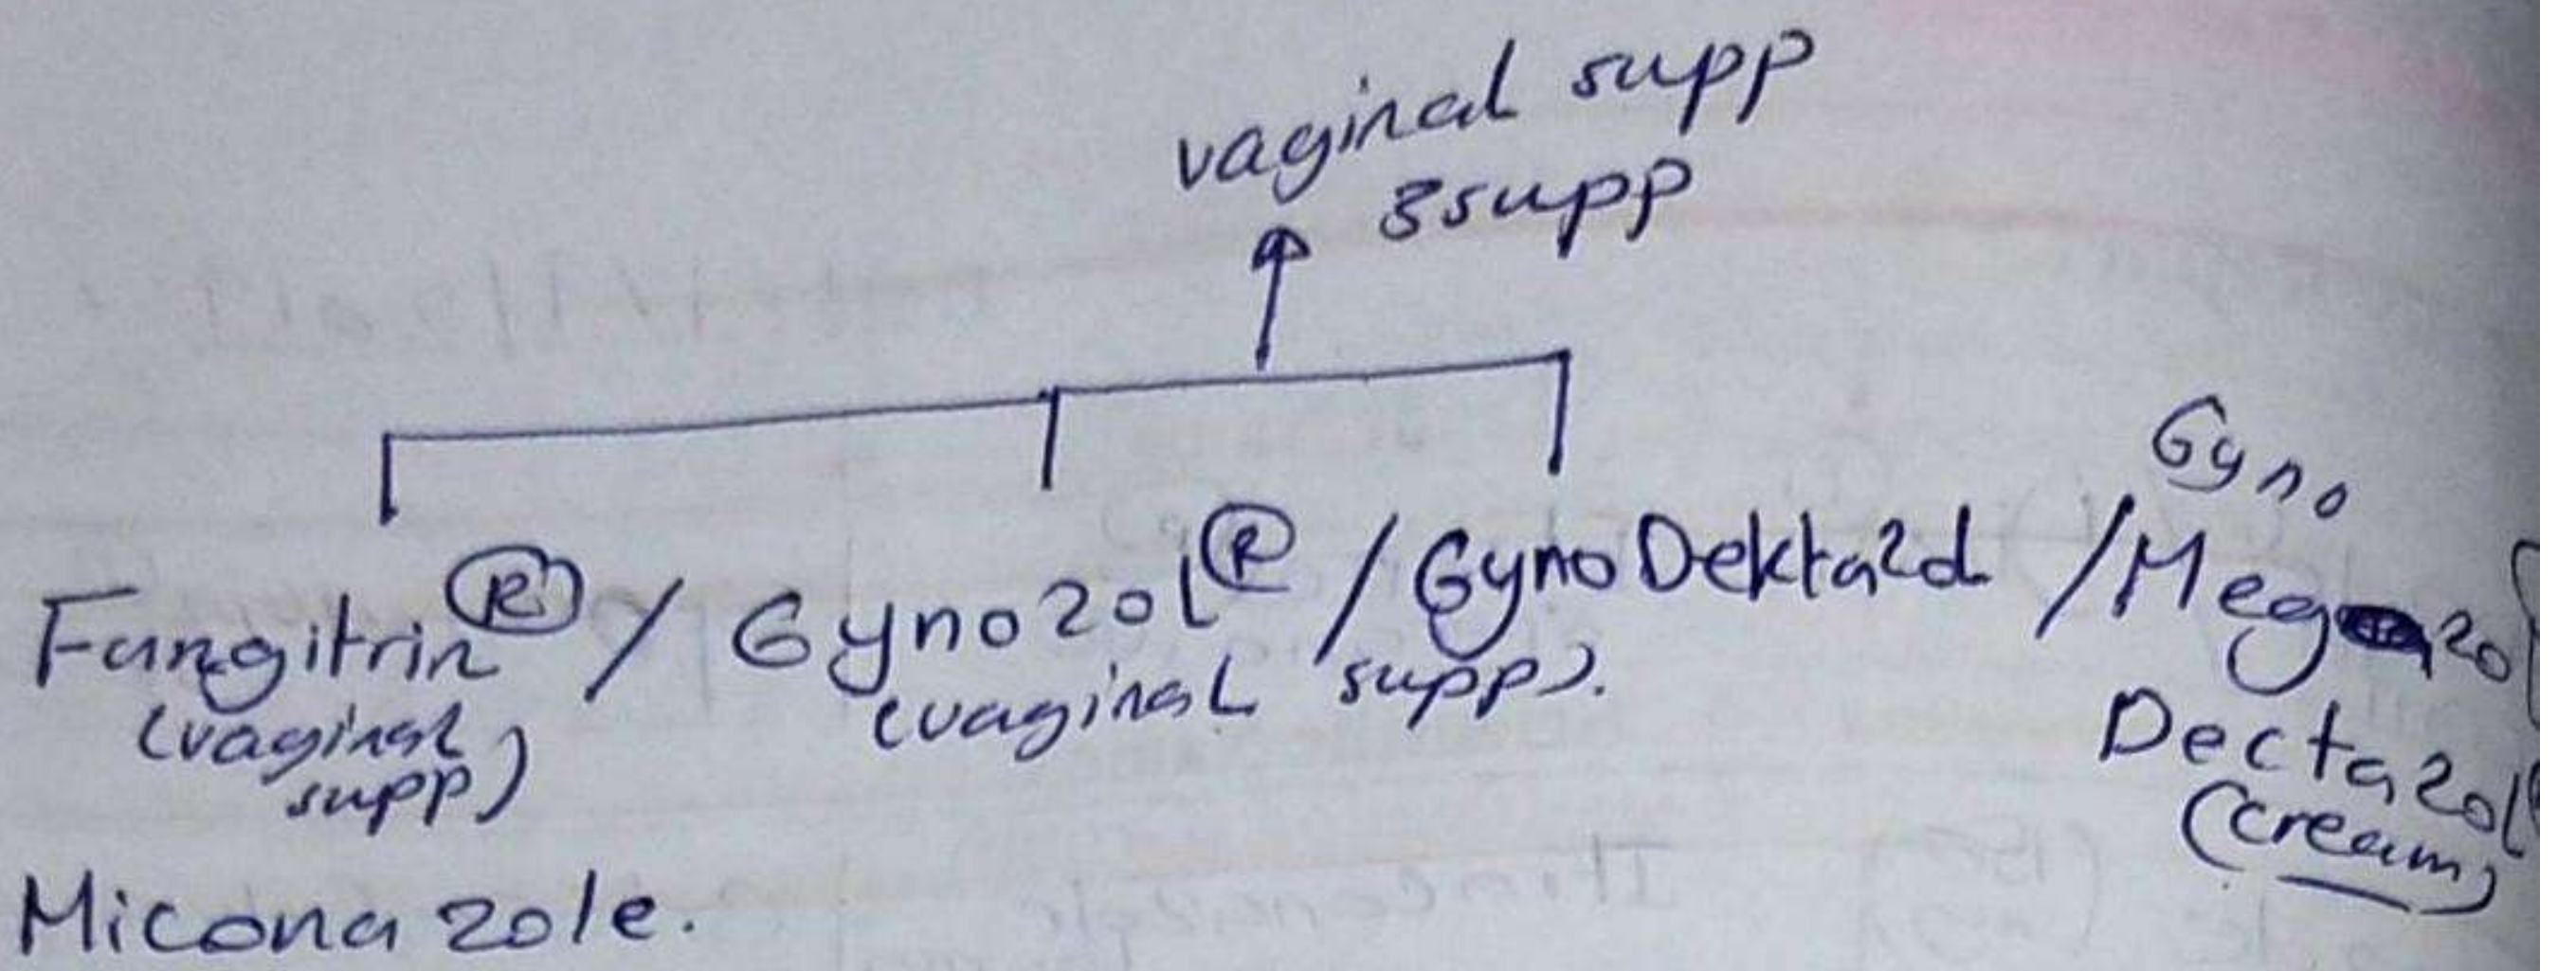 vaginal supp
3supp
Gyno
Fungitrin® / Gynozol® / GynoDektazol / Megazo
(vaginal supp)
(vaginal supp).
Dectazol
(cream)
Miconazole.